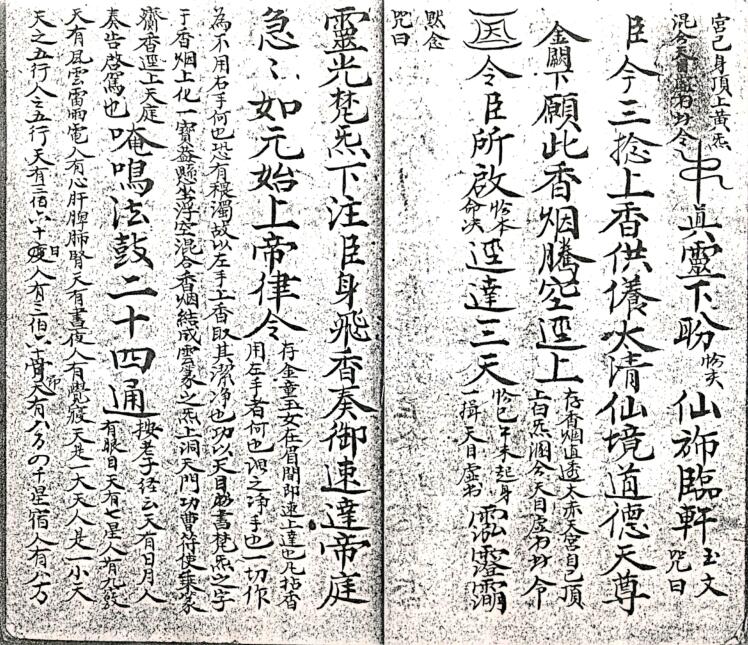 宮己身頂上黃炁
混合天目虛書 令
真靈下盼 仙斾臨軒 玉文 咒曰
臣今三捻上香供養太清仙境道德天尊
存香烟直透太赤天宮自己頂
上白炁混合天目虛書 令
金闕下願此香烟騰空逕上
令臣所啟 逕達三天
恰己午未起身
一揖 天目虛書
默念
咒曰
靈光梵炁下注臣身飛香奏御速達帝庭
急〻如元始上帝律令
存金童玉女在眉間即速上達也凡拈香
用左手者何也謂之净手也一切作
為不用右手何也恐有穢濁故以左手上香取其潔净也功以天目 書梵炁之字
于香烟上化一寶蓋懸坐浮空混合香烟結成雲篆之炁上洞天門功曹符使乘篆
齎香逕上天庭
奏告啓寫也 唵鳴法鼓二十四通
按老子経云天有日月人
有眼目天有七星人有九竅
天有風雲雷雨電人有心肝脾肺腎天有晝夜人有覺寢天是一大天人是一小天
天之五行人之五行天有三百六十度人有三佰六十骨天有八万四千星宿人有八万